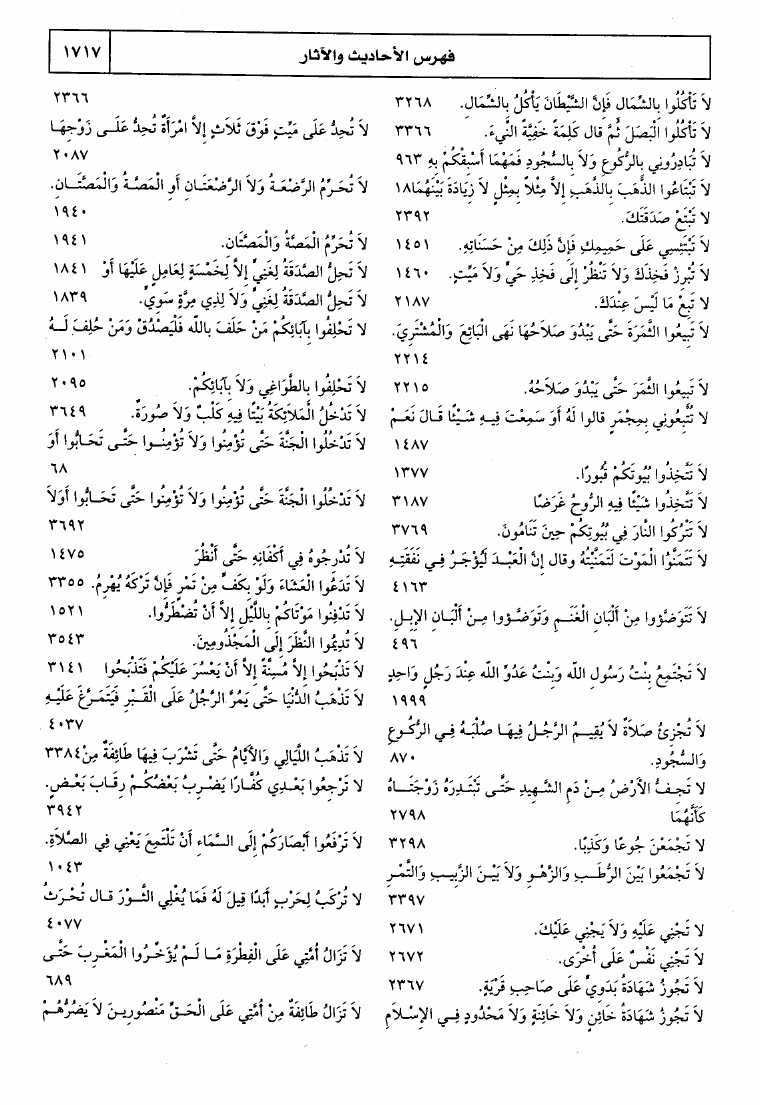 فهرس الأحاديث والآثار
١٧١٧
لاَ تَأْكُلُوا بِالشِّمَالِ فَإِنَّ الشَّيْطَانَ يَأْكُلُ بِالشِّمَالِ. ٣٢٦٨
لاَ تَأْكُلُوا الْبَصَلَ ثُمَّ قال كَلِمَةً خَفِيَّةً النَّيءَ. ٣٣٦٦
لاَ تُبَادِرُونِي بِالرُّكُوعِ وَلاَ بِالسُّجُودِ فَمَهْمَا أَسْبِقكُمْ بِهِ ٩٦٣
لاَ تَبْتَاعُوا الذَّهَبَ بِالذَّهَبِ إِلاَّ مِثْلاً بِمِثْلٍ لاَ زِيَادَةَ بَيْنَهُمَا ١٨
لا تَبْتَعْ صَدَقَتَكَ. ٢٣٩٢
لاَ تَبْتَئِسِي عَلَى حَمِيمِكِ فَإِنَّ ذَلِكَ مِنْ حَسَنَاتِهِ. ١٤٥١
لاَ تُبْرِزْ فَخِذَكَ وَلاَ تَنْظُرْ إِلَى فَخِذِ حَيٍّ وَلاَ مَيِّتٍ. ١٤٦٠
لا تَبِعْ مَا لَيْسَ عِنْدَكَ. ٢١٨٧
لاَ تَبِيعُوا الثَّمَرَةَ حَتَّى يَبْدُوَ صَلاَحُهَا نَهَى الْبَائِعَ وَالْمُشْتَرِيَ.
٢٢١٤
لاَ تَبِيعُوا الثَّمَرَ حَتَّى يَبْدُوَ صَلاَحُهُ. ٢٢١٥
لا تُتْبِعُونِي بِمِجْمَرٍ قالوا لَهُ أَوَ سَمِعْتَ فِيهِ شَيْئًا قَالَ نَعَمْ
١٤٨٧
لاَ تَتَّخِذُوا بُيُوتَكُمْ قُبُورًا. ١٣٧٧
لاَ تَتَّخِذُوا شَيْئًا فِيهِ الرُّوحُ غَرَضًا ٣١٨٧
لاَ تَتْرُكُوا النَّارَ فِي بُيُوتِكُمْ حِينَ تَنَامُونَ. ٣٧٦٩
لاَ تَتَمَنَّوُا الْمَوْتَ لَتَمَنَّيْتُهُ وقال إِنَّ الْعَبْدَ لَيُؤْجَرُ فِي نَفَقَتِهِ
٤١٦٣
لاَ تَتَوَضَّؤوا مِنْ أَلْبَانِ الْغَنَمِ وَتَوَضَّؤوا مِنْ أَلْبَانِ الإِبِلِ.
٤٩٦
لاَ تَجْتَمِعُ بِنْتُ رَسُولِ اللَّه وَبِنْتُ عَدُوِّ اللَّه عِنْدَ رَجُلٍ وَاحِدٍ
١٩٩٩
لاَ تُجْزِئُ صَلاَةٌ لاَ يُقِيمُ الرَّجُلُ فِيهَا صُلْبَهُ فِي الرُّكُوعِ
وَالسُّجُودِ. ٨٧٠
لا تَجِفُّ الأَرْضُ مِنْ دَمِ الشَّهِيدِ حَتَّى تَبْتَدِرَهُ زَوْجَتَاهُ
كَأَنَّهُمَا ٢٧٩٨
لا تَجْمَعْنَ جُوعًا وَكَذِبًا. ٣٢٩٨
لاَ تَجْمَعُوا بَيْنَ الرُّطَبِ وَالزَّهْوِ وَلاَ بَيْنَ الزَّبِيبِ وَالتَّمْرِ
٣٣٩٧
لا تَجْنِي عَلَيْهِ وَلاَ يَجْنِي عَلَيْكَ. ٢٦٧١
لا تَجْنِي نَفْسٌ عَلَى أُخْرَى. ٢٦٧٢
لاَ تَجُوزُ شَهَادَةُ بَدَوِيٍّ عَلَى صَاحِبِ قَرْيَةٍ. ٢٣٦٧
لاَ تَجُوزُ شَهَادَةُ خَائِنٍ وَلاَ خَائِنَةٍ وَلاَ مَحْدُودٍ فِي الإِسْلاَمِ
٢٣٦٦
لاَ تُحِدُّ عَلَى مَيِّتٍ فَوْقَ ثَلاَثٍ إِلاَّ امْرَأَةٌ تُحِدُّ عَلَى زَوْجِهَا
٢٠٨٧
لاَ تُحَرِّمُ الرَّضْعَةُ وَلاَ الرَّضْعَتَانِ أَوِ الْمَصَّةُ وَالْمَصَّتَانِ.
١٩٤٠
لاَ تُحَرِّمُ الْمَصَّةُ وَالْمَصَّتَانِ. ١٩٤١
لاَ تَحِلُّ الصَّدَقَةُ لِغَنِيٍّ إِلاَّ لِخَمْسَةٍ لِعَامِلٍ عَلَيْهَا أَوْ ١٨٤١
لاَ تَحِلُّ الصَّدَقَةُ لِغَنِيٍّ وَلاَ لِذِي مِرَّةٍ سَوِيٍّ. ١٨٣٩
لا تَحْلِفُوا بِآبَائِكُمْ مَنْ حَلَفَ بِاللَّه فَلْيَصْدُقْ وَمَنْ حُلِفَ لَهُ
٢١٠١
لاَ تَحْلِفُوا بِالطَّوَاغِي وَلاَ بِآبَائِكُمْ. ٢٠٩٥
لاَ تَدْخُلُ الْمَلاَئِكَةُ بَيْتًا فِيهِ كَلْبٌ وَلاَ صُورَةٌ. ٣٦٤٩
لاَ تَدْخُلُوا الْجَنَّةَ حَتَّى تُؤْمِنُوا وَلاَ تُؤْمِنُوا حَتَّى تَحَابُّوا أَوَ
٦٨
لاَ تَدْخُلُوا الْجَنَّةَ حَتَّى تُؤْمِنُوا وَلاَ تُؤْمِنُوا حَتَّى تَحَابُّوا أَوَلاَ
٣٦٩٢
لاَ تُدْرِجُوهُ فِي أَكْفَانِهِ حَتَّى أَنْظُرَ ١٤٧٥
لاَ تَدَعُوا الْعَشَاءَ وَلَوْ بِكَفٍّ مِنْ تَمْرٍ فَإِنَّ تَرْكَهُ يُهْرِمُ. ٣٣٥٥
لاَ تَدْفِنُوا مَوْتَاكُمْ بِاللَّيْلِ إِلاَّ أَنْ تُضْطَرُّوا. ١٥٢١
لاَ تُدِيمُوا النَّظَرَ إِلَى الْمَجْذُومِينَ. ٣٥٤٣
لاَ تَذْبَحُوا إِلاَّ مُسِنَّةً إِلاَّ أَنْ يَعْسُرَ عَلَيْكُمْ فَتَذْبَحُوا ٣١٤١
لاَ تَذْهَبُ الدُّنْيَا حَتَّى يَمُرَّ الرَّجُلُ عَلَى الْقَبْرِ فَيَتَمَرَّغَ عَلَيْهِ
٤٠٣٧
لاَ تَذْهَبُ اللَّيَالِي وَالأَيَّامُ حَتَّى تَشْرَبَ فِيهَا طَائِفَةٌ مِنْ ٣٣٨٤
لا تَرْجِعُوا بَعْدِي كُفَّارًا يَضْرِبُ بَعْضُكُمْ رِقَابَ بَعْضٍ.
٣٩٤٢
لاَ تَرْفَعُوا أَبْصَارَكُمْ إِلَى السَّمَاءِ أَنْ تَلْتَمِعَ يَعْنِي فِي الصَّلاَةِ.
١٠٤٣
لا تُرْكَبُ لِحَرْبٍ أَبَدًا قِيلَ لَهُ فَمَا يُغْلِي الثَّوْرَ قال تُحْرَثُ
٤٠٧٧
لاَ تَزَالُ أُمَّتِي عَلَى الْفِطْرَةِ مَا لَمْ يُؤَخِّرُوا الْمَغْرِبَ حَتَّى
٦٨٩
لاَ تَزَالُ طَائِفَةٌ مِنْ أُمَّتِي عَلَى الْحَقِّ مَنْصُورِينَ لاَ يَضُرُّهُمْ